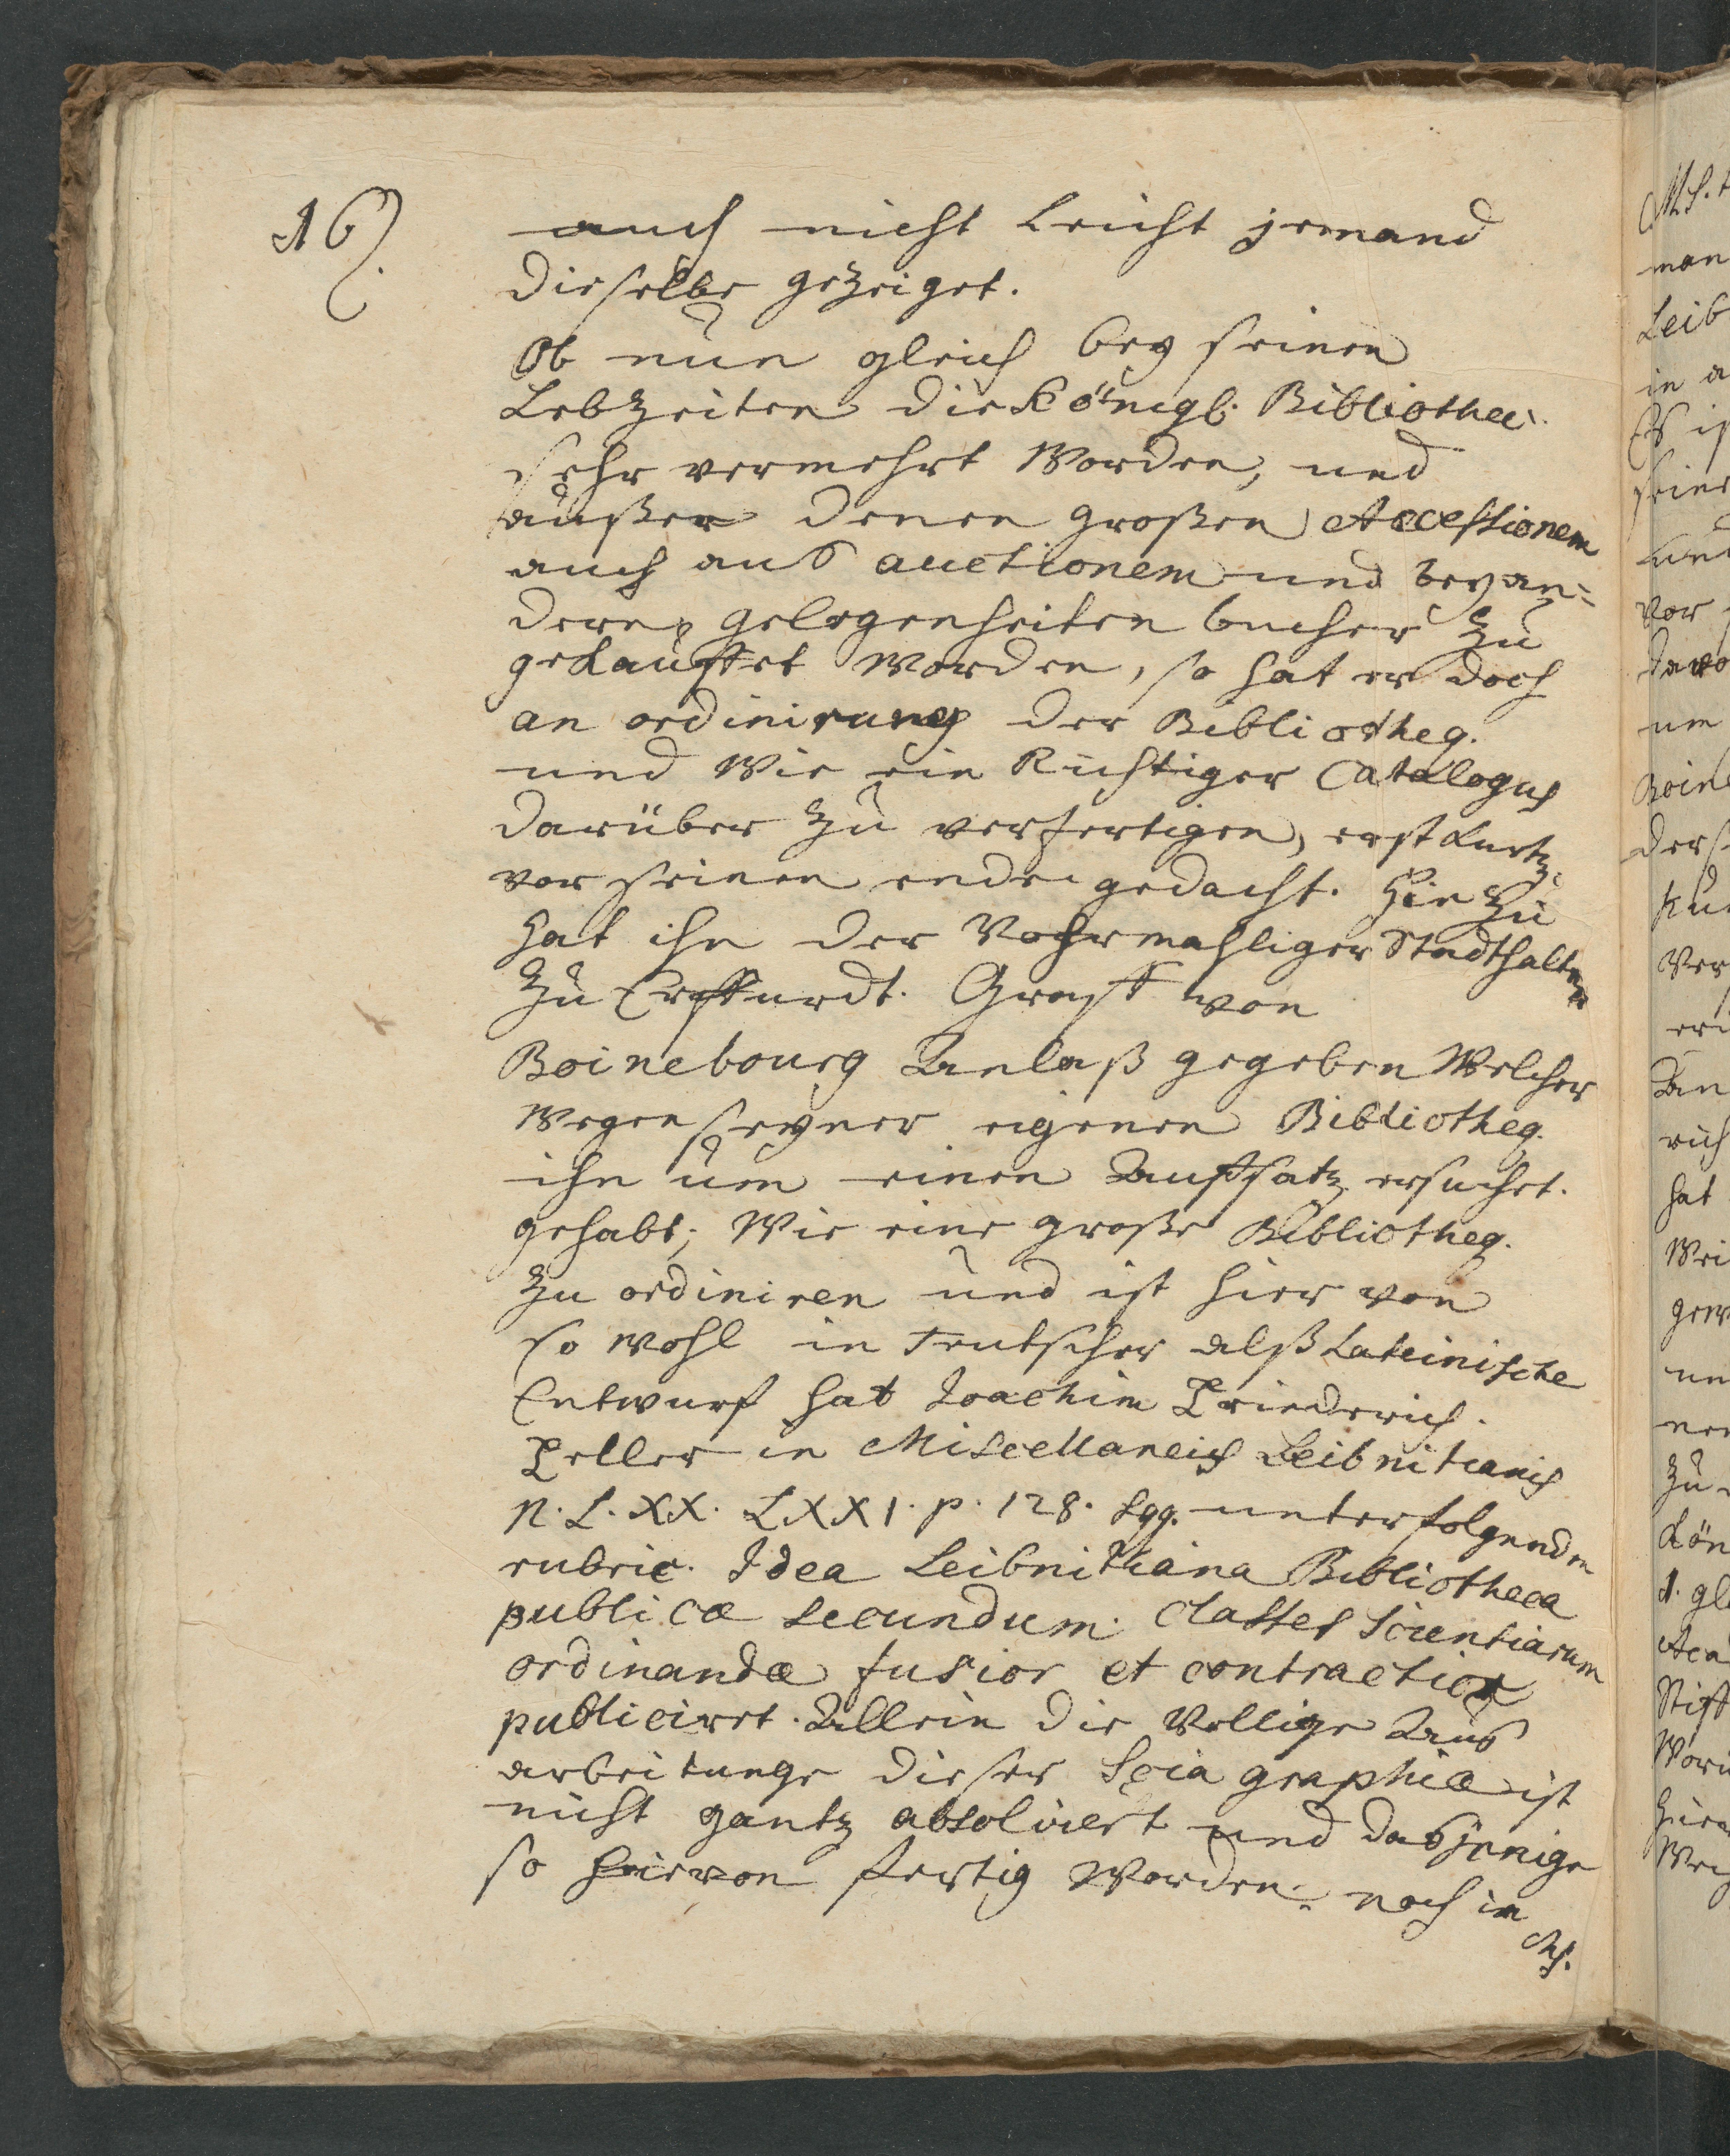 16).
auch nicht Leicht jemand
dieselbe gezeiget.
Ob nun gleich bey seinen
Lebzeiten die Königl. Bibliothec.
sehr vermehrt Worden, und
außer denen großen Accessionem
auch aus auctionem und bey an=
deren gelegenheiten bucher zu
gekauffet Worden, so hat er doch
an ordinirung der Bibliotheq.
und Wie ein Richtiger Catalogus
darüber zu verfertigen, erst kurtz
vor seinen ende gedacht. Hin zu
hat ihn der Vohrmahliger Stadthalter
zu Erffurdt. Graff von
Boinebourg Anlaß gegeben Welcher
Wegen seyner eigenen Bibliotheq.
ihn um einen Auffsatz ersuchet.
gehabt; Wie eine große Bibliotheq.
zu ordiniren und ist hier von
so wohl in Teutscher alß Lateinische
Entwurf hat Joachim Friederich.
Feller in Miscellaneis Leibnitianis
N. L. XX. LXXI. p. 128. sqq. unter folgenden
rubric. Idea Leibnitiana Bibliotheca
publicæ secundum. Classes Scientiarum
ordinandæ fusior et contractior
publiciret. Allein die Vollige Aus
arbeitunge dieser Scia graphiæ ist
nicht gantz absolviert und dasjenige
so hiervon fertig Worden. noch in
Ms.
M.S.
man
Leib
in a
Es is
seine
und
vor
davo
um
Boine
ders
Ver
An
hat
Wei
gew
un
zu
Kön
1. gl
Aca
Stift